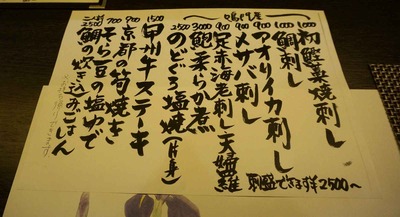 初鰹藁焼刺し 1000
鯛刺し 1000
アオリイカ刺し 900
メサバ刺し 900
足赤海老刺し天婦羅
鮑柔らか煮 3000
のどぐろ塩焼(片身) 2500
甲州牛ステーキ 1500
京都の筍焼き 900
そら豆の塩ゆで 700
鯛の炊き込みごはん 二人前 2500
刺盛できます¥2500〜